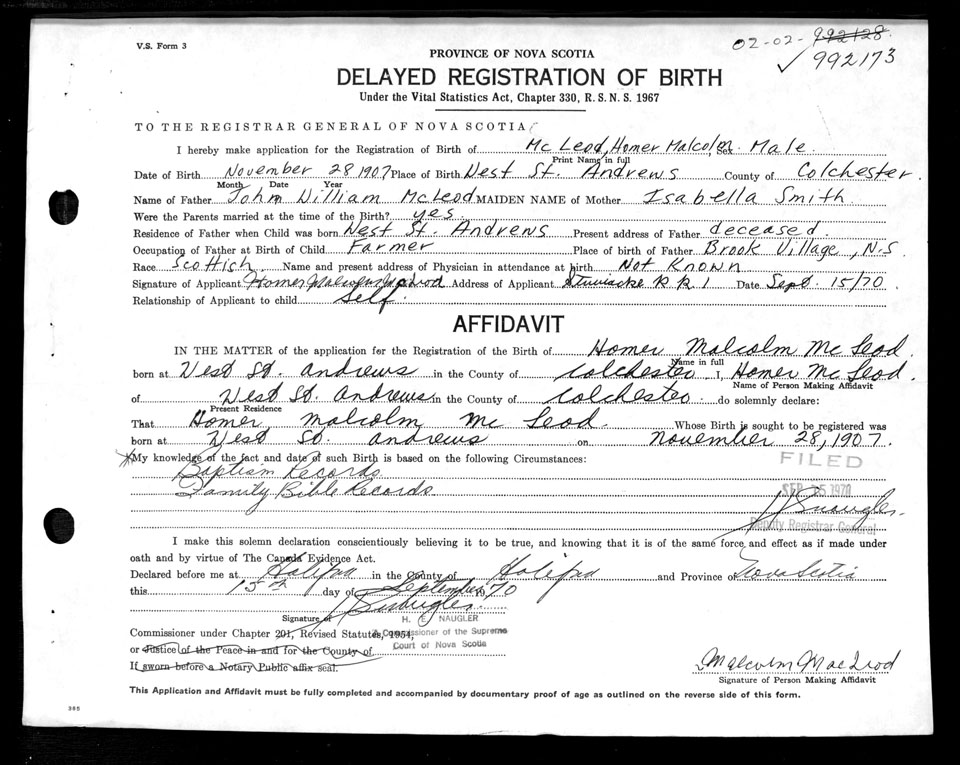 V.S. Form 3
02-02-992128
✓ 992173
PROVINCE OF NOVA SCOTIA
DELAYED REGISTRATION OF BIRTH
Under the Vital Statistics Act, Chapter 330, R.S.N.S. 1967
TO THE REGISTRAR GENERAL OF NOVA SCOTIA
I hereby make application for the Registration of Birth of Mc Leod, Homer Malcolm, Sex Male.
Print Name in full
Date of Birth November 28 1907 Place of Birth West St. Andrews County of Colchester.
Month Date Year
Name of Father John William McLeod MAIDEN NAME of Mother Isabella Smith
Were the Parents married at the time of the Birth? yes.
Residence of Father when Child was born West St. Andrews Present address of Father deceased.
Occupation of Father at Birth of Child Farmer Place of birth of Father Brook Village, N.S
Race Scottish Name and present address of Physician in attendance at birth Not Known
Signature of Applicant Homer Malcolm Address of Applicant Stewiacke R R 1 Date Sept. 15/70
Relationship of Applicant to child self.
AFFIDAVIT
IN THE MATTER of the application for the Registration of the Birth of Homer Malcolm Mc Leod.
Name in full
born at West St. Andrews in the County of Colchester I, Homer Mc Leod.
Name of Person Making Affidavit
of West St. Andrews in the County of Colchester do solemnly declare:
Present Residence
That Homer Malcolm Mc Leod Whose Birth is sought to be registered was
born at West St. Andrews on November 28, 1907.
My knowledge of the fact and date of such Birth is based on the following Circumstances:
FILED
Baptism Records
SEP 15 1970
Family Bible Records
Naugler
Deputy Registrar General
I make this solemn declaration conscientiously believing it to be true, and knowing that it is of the same force and effect as if made under
oath and by virtue of The Canada Evidence Act.
Declared before me at Halifax in the County of Halifax and Province of Nova Scotia
this 15th day of September 1970
Naugler
Signature of H. E. NAUGLER
Commissioner under Chapter 201, Revised Statutes, 1954, A Commissioner of the Supreme
Court of Nova Scotia
or Justice of the Peace in and for the County of
If sworn before a Notary Public affix seal.
Malcolm MacLeod
Signature of Person Making Affidavit
This Application and Affidavit must be fully completed and accompanied by documentary proof of age as outlined on the reverse side of this form.